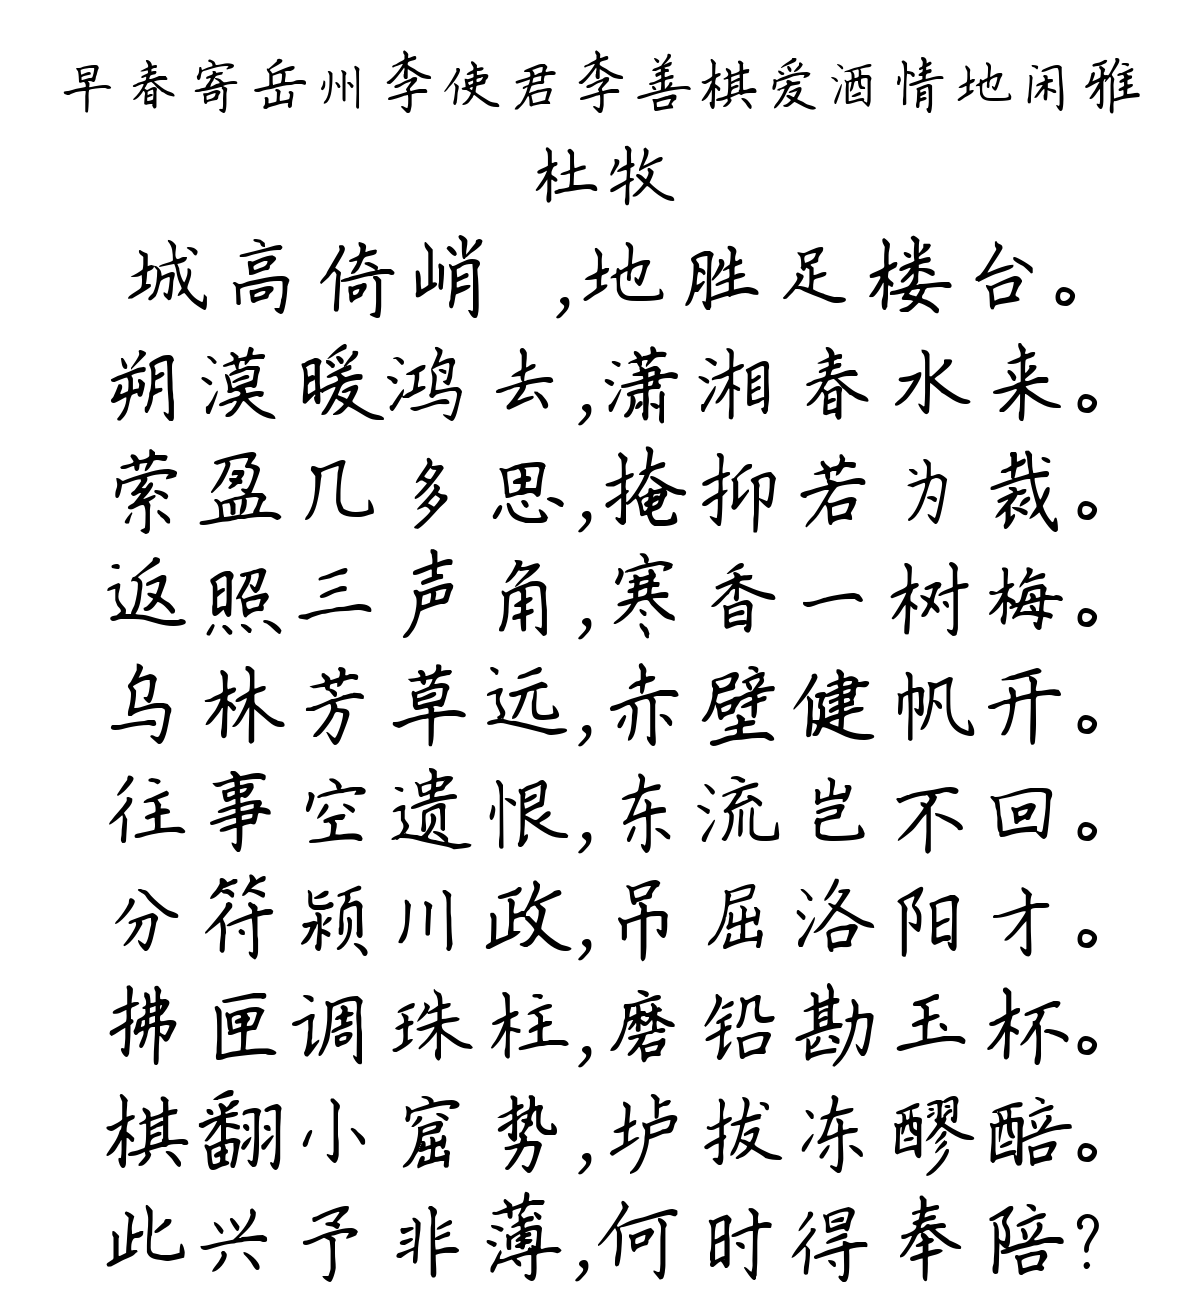 早春寄岳州李使君李善棋爱酒情地闲雅
杜牧
城高倚峭 ,地胜足楼台。
朔漠暖鸿去,潇湘春水来。
萦盈几多思,掩抑若为裁。
返照三声角,寒香一树梅。
乌林芳草远,赤壁健帆开。
往事空遗恨,东流岂不回。
分符颍川政,吊屈洛阳才。
拂匣调珠柱,磨铅勘玉杯。
棋翻小窟势,垆拔冻醪醅。
此兴予非薄,何时得奉陪?